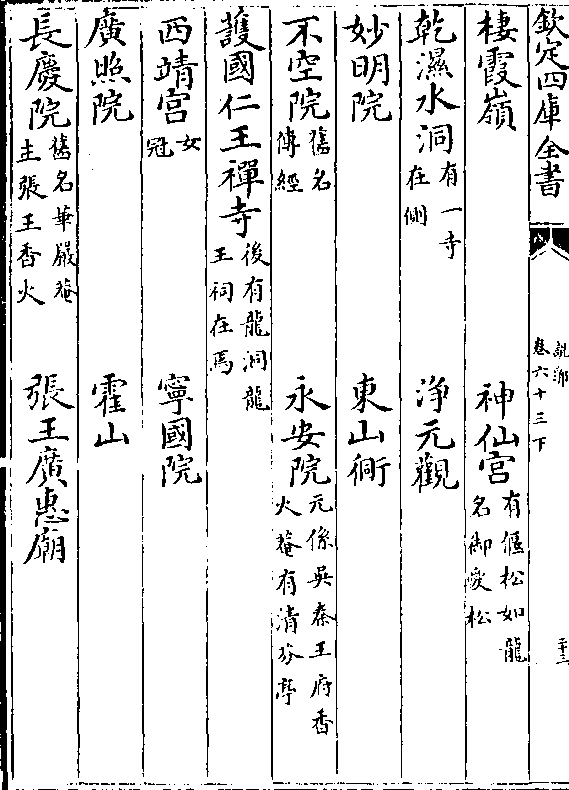 欽定四庫全書
說郛
卷六十三下
二十三
棲霞嶺
神仙宮 有偃松如龍
名御愛松
乾濕水洞 有一寺
在側
淨元觀
妙明院
東山衕
不空院 舊名
傳經
永安院 元係吳秦王府香
火菴有清芬亭
護國仁王禪寺 後有龍洞龍
王祠在焉
西靖宮 女
冠
寧國院
廣照院
霍山
長慶院 舊名華嚴菴
主張王香火
張王廣惠廟